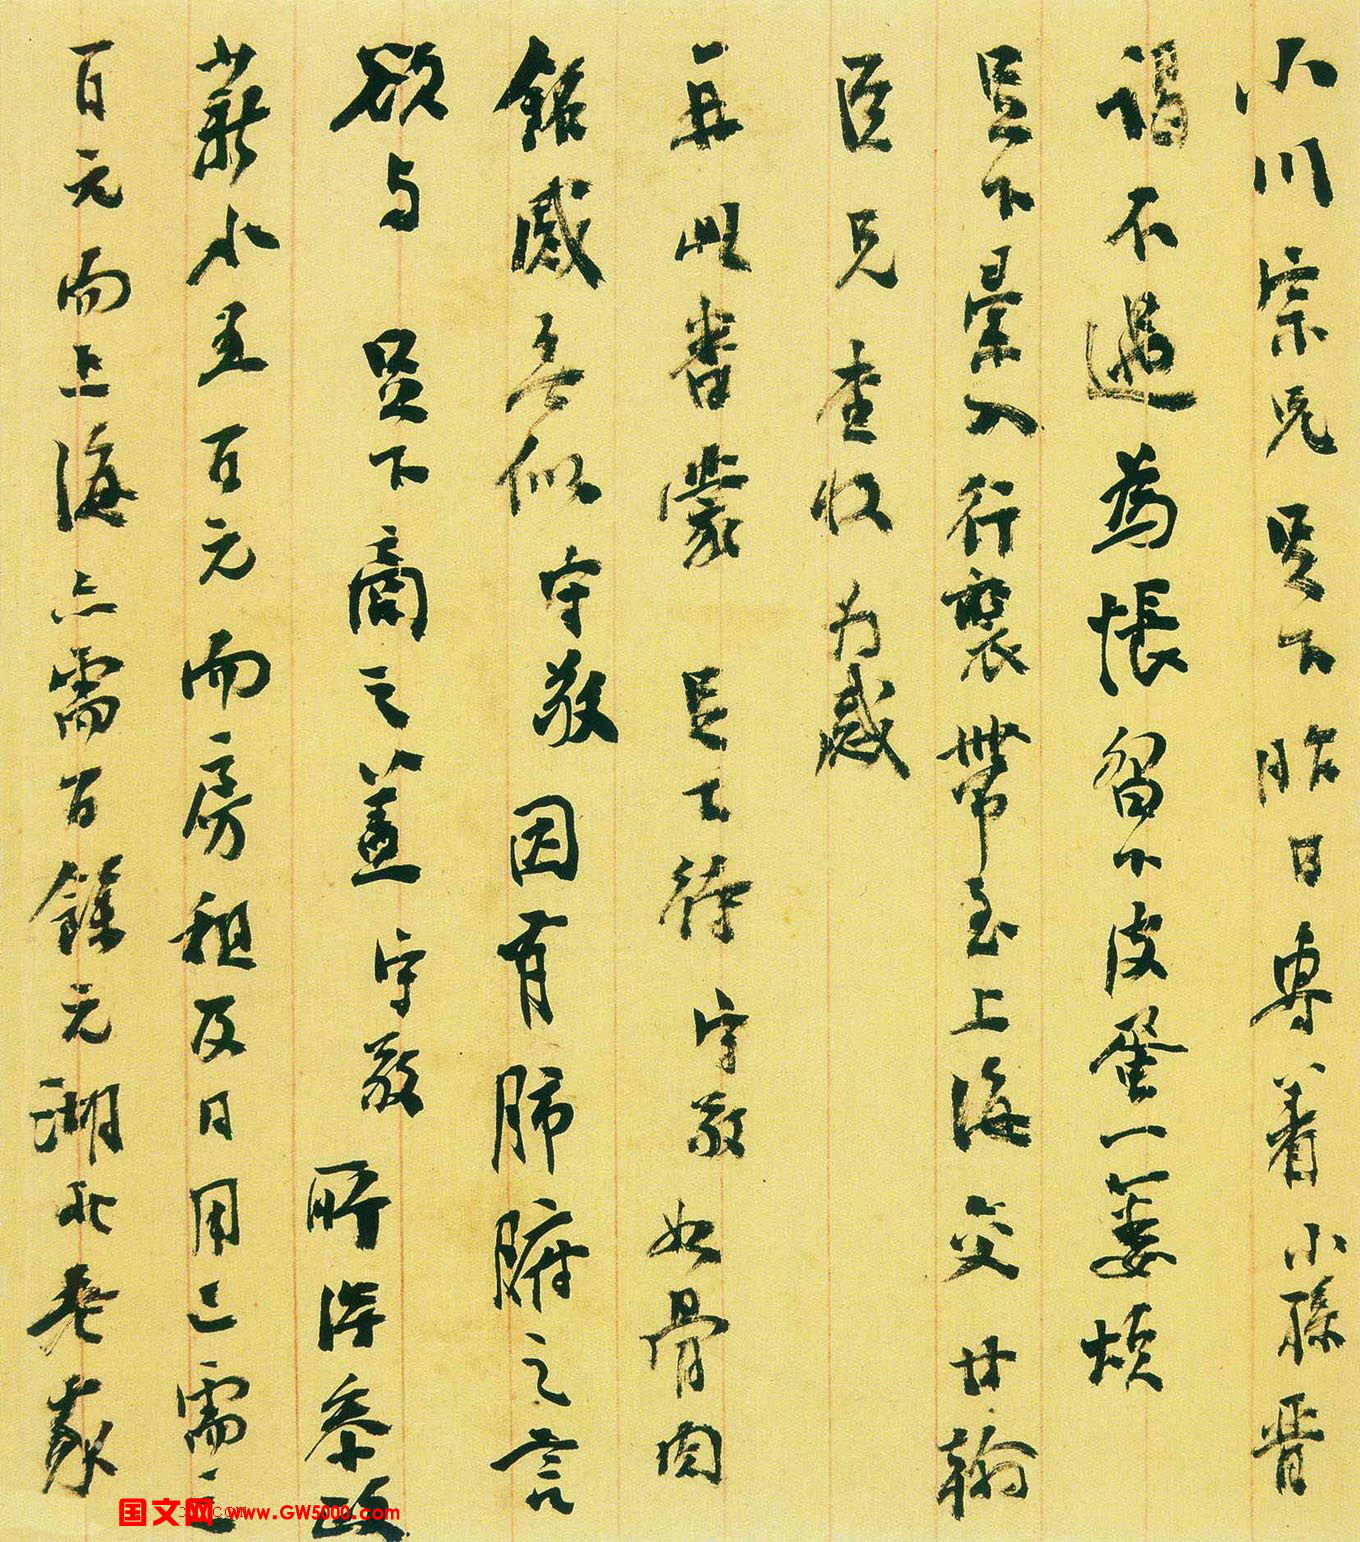 小川宗兄足下昨日專着小孫晉
謁不遇為悵留下皮蛋一簍煩
足下彙入行裝帶至上海交甘翰
臣兄查收为感
再此番蒙 足下待守敬如骨肉
銘感無似守敬因有肺腑之言
欲与 足下商之蓋守敬所谋奉政
薪水五百元而房租及日用已需之
百元而上海亦需百餘元湖北老家
国文网 www.GW5000.com